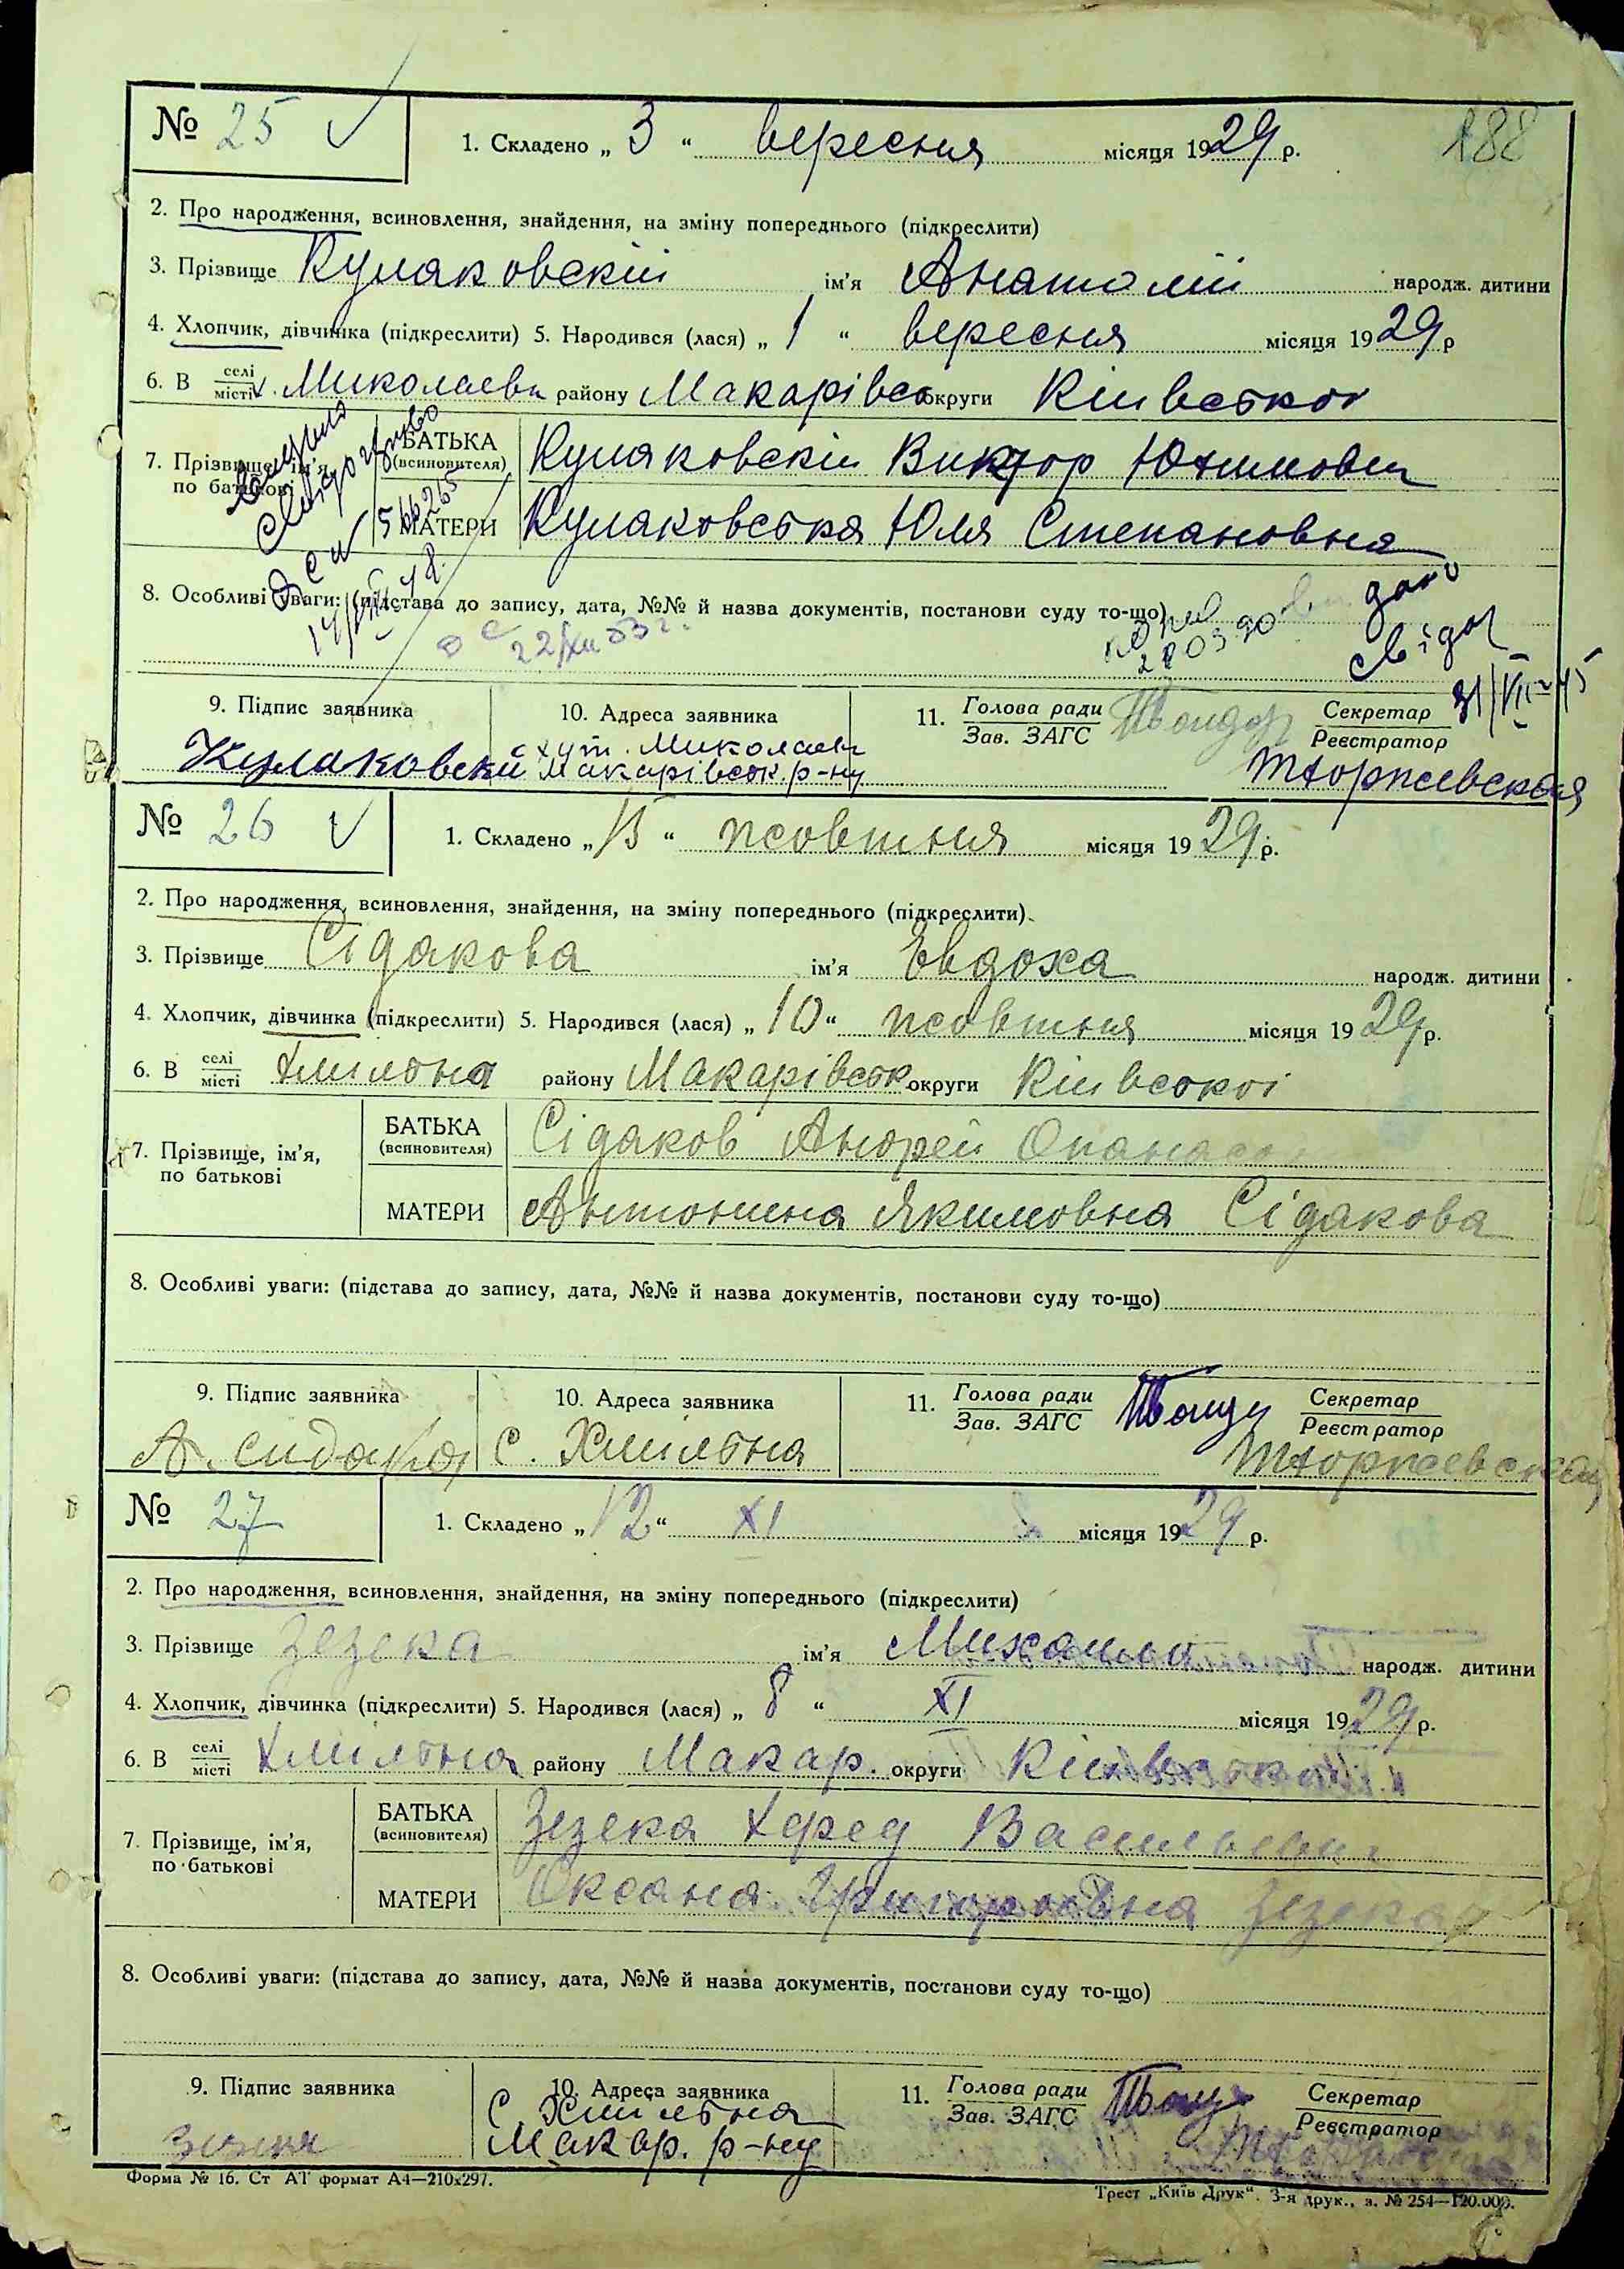 № 25 1. Складено „ 3 “ вересня місяця 1929 р. 188
2. Про народження, всиновлення, знайдення, на зміну попереднього (підкреслити)
3. Прізвище Кулаковскій ім'я Анатолій народж. дитини
4. Хлопчик, дівчинка (підкреслити) 5. Народився (лася) „ 1 “ вересня місяця 1929 р
6. В селі місті х. Миколаевк району Макарівск округи Київської
7. Прізвище, ім'я, по батькові БАТЬКА (всиновителя) Кулаковскій Виктор Юхимович
МАТЕРИ Кулаковська Юля Степановна
8. Особливі уваги: (підстава до запису, дата, №№ й назва документів, постанови суду то-що)
22/XII 53 г.
дано свідоц 31/VII-45
9. Підпис заявника 10. Адреса заявника 11. Голова ради Зав. ЗАГС Секретар Реєстратор
Кулаковский хут. Миколаевк
Макарівськ. р-ну
№ 26 1. Складено „ 13 “ жовтня місяця 1929 р.
2. Про народження, всиновлення, знайдення, на зміну попереднього (підкреслити)
3. Прізвище Сідакова ім'я Евдоха народж. дитини
4. Хлопчик, дівчинка (підкреслити) 5. Народився (лася) „ 10 “ жовтня місяця 1929 р.
6. В селі місті Хмильна району Макарівськ округи Київської
7. Прізвище, ім'я, по батькові БАТЬКА (всиновителя) Сідаков Андрей Опанасо
МАТЕРИ Антонина Якимовна Сідакова
8. Особливі уваги: (підстава до запису, дата, №№ й назва документів, постанови суду то-що)
9. Підпис заявника 10. Адреса заявника 11. Голова ради Зав. ЗАГС Секретар Реєстратор
А. Сидаков С. Хмильна
№ 27 1. Складено „ 12 “ XI місяця 1929 р.
2. Про народження, всиновлення, знайдення, на зміну попереднього (підкреслити)
3. Прізвище Зезека ім'я Михаила народж. дитини
4. Хлопчик, дівчинка (підкреслити) 5. Народився (лася) „ 8 “ XI місяця 1929 р.
6. В селі місті Хмильна району Макар. округи Київської
7. Прізвище, ім'я, по батькові БАТЬКА (всиновителя) Зезека Хфред Васильевич
МАТЕРИ Оксана Григоровна Зезека
8. Особливі уваги: (підстава до запису, дата, №№ й назва документів, постанови суду то-що)
9. Підпис заявника 10. Адреса заявника 11. Голова ради Зав. ЗАГС Секретар Реєстратор
С. Хмильна
Макар. р-ну
Форма № 16. Ст АТ формат А4—210х297. Трест „Київ Друк“. 3-я друк., з. № 254—120.000.